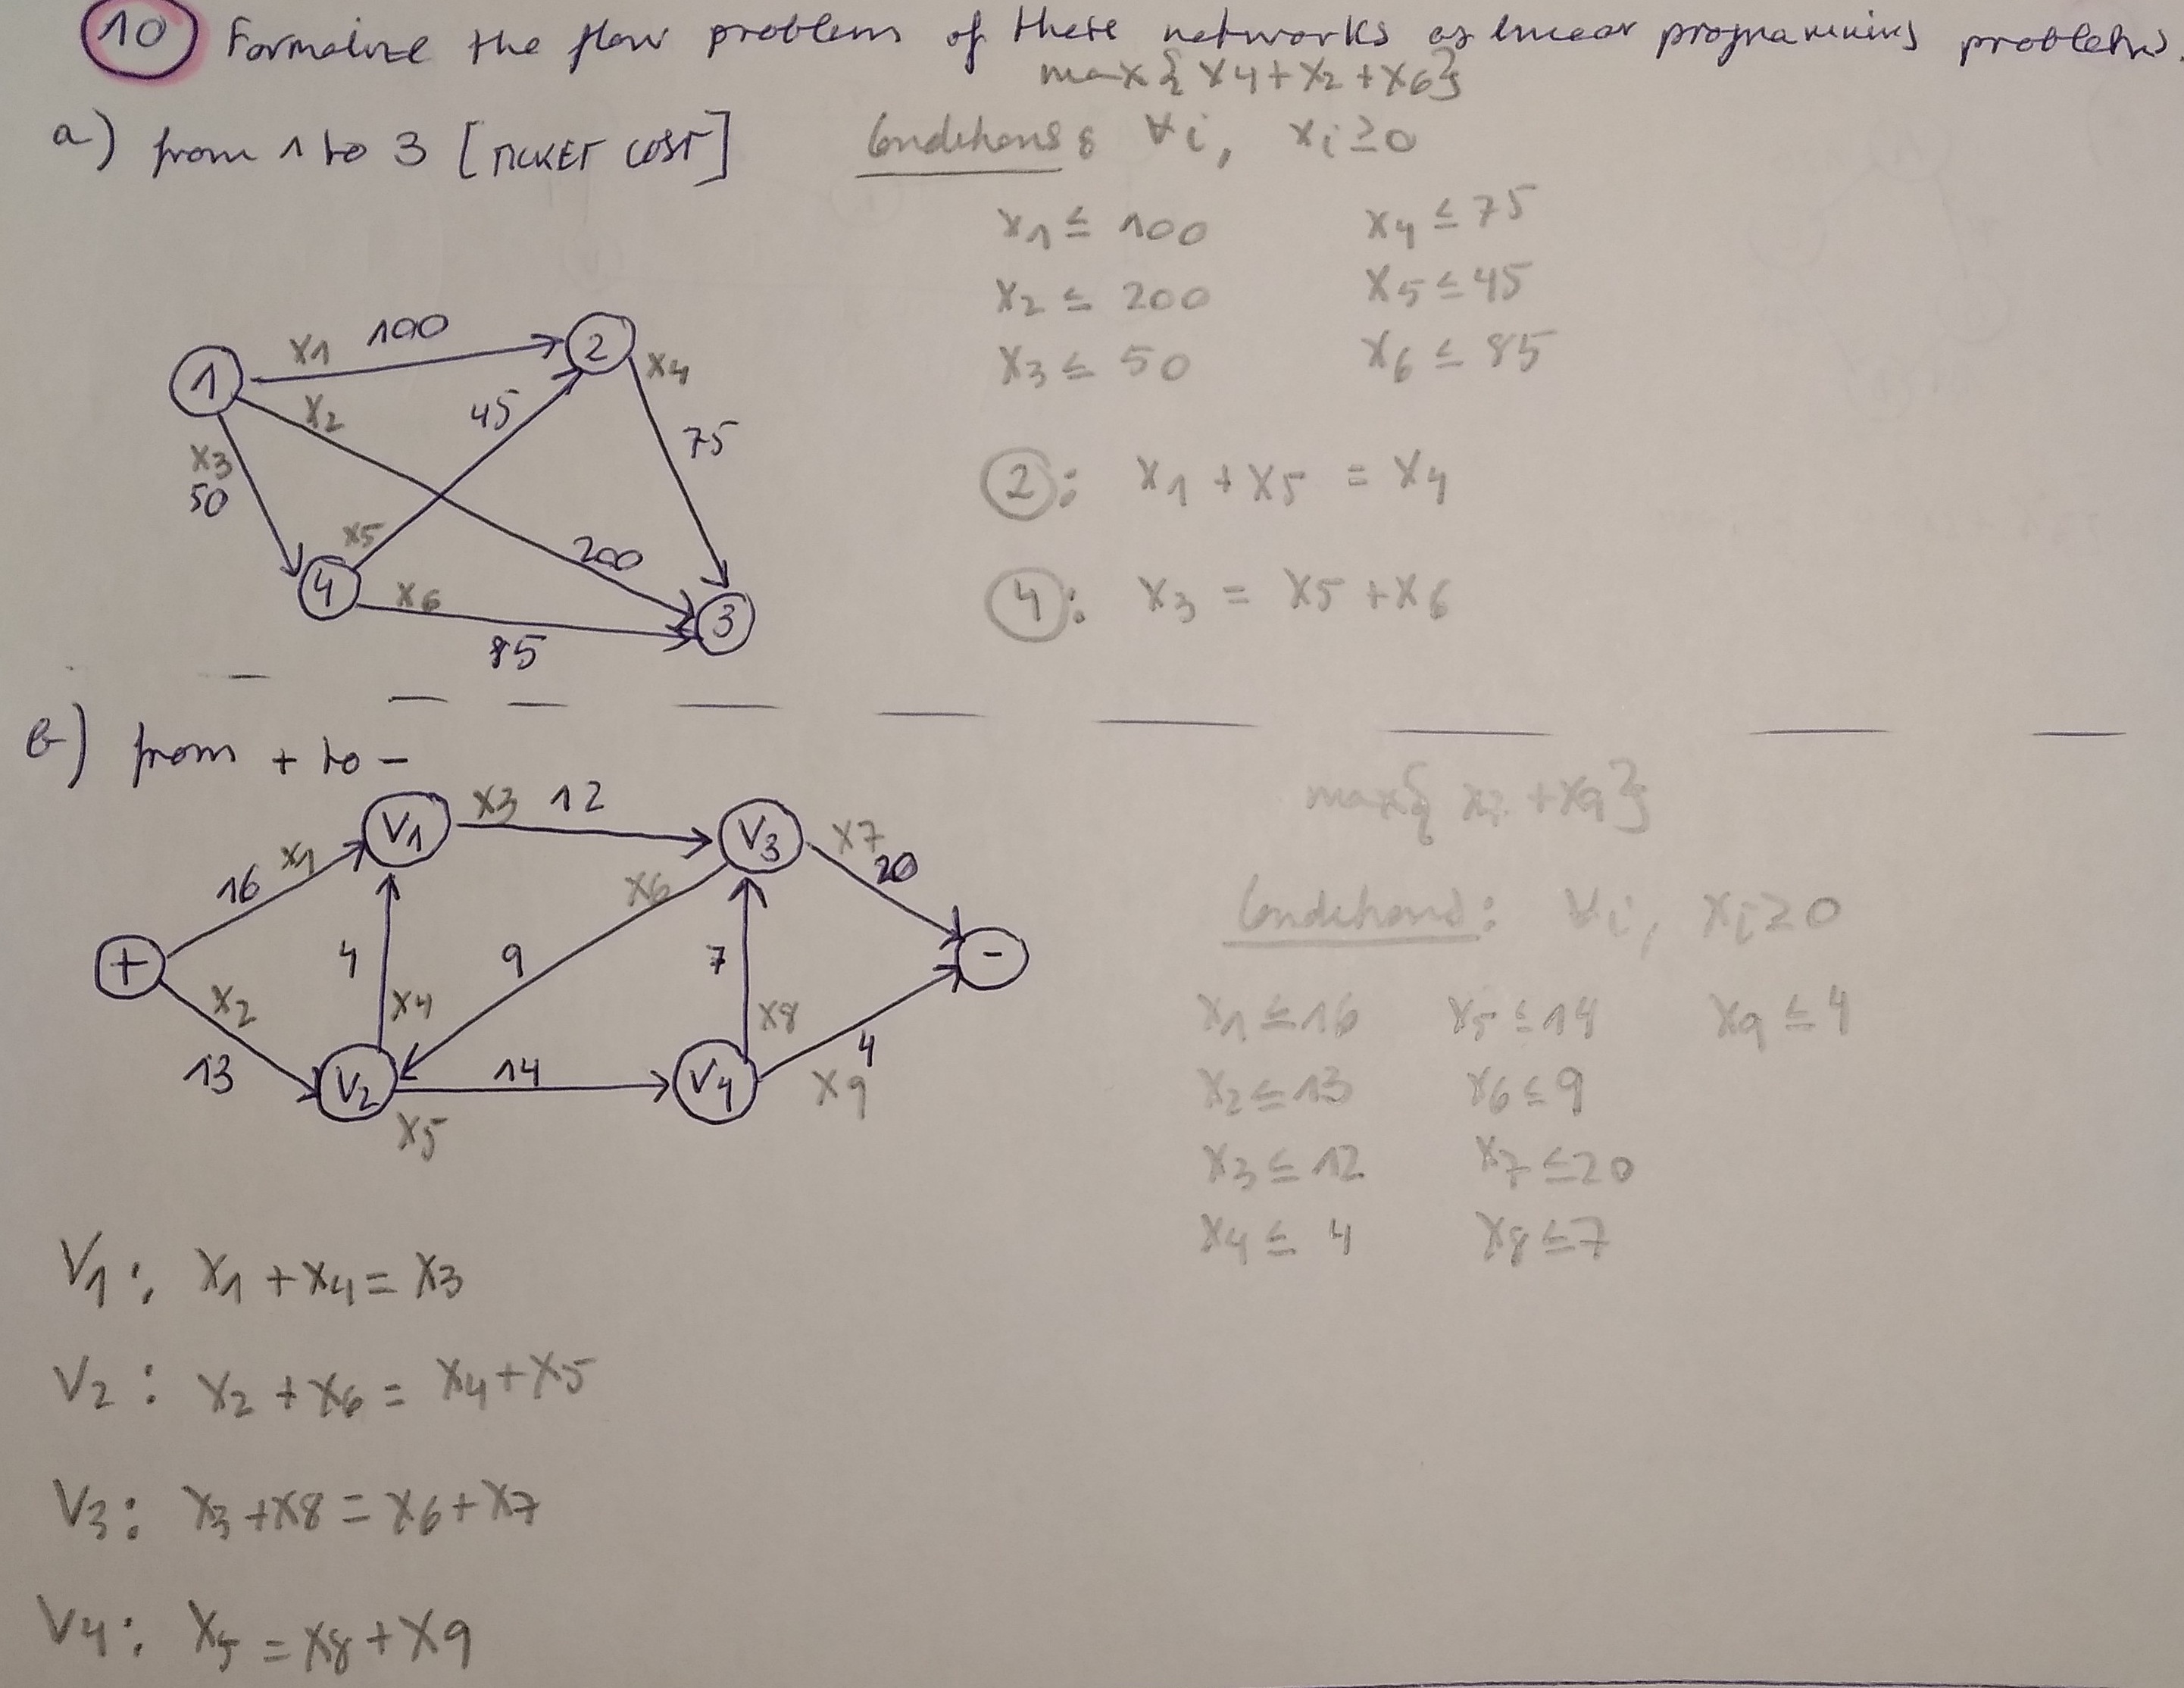 10 Formalize the flow problem of these networks as linear programming problems.
max{x4+x2+x6}
a) from 1 to 3 [TICKET COST]
Conditions: ∀i, xi≥0
x1 ≤ 100 x4 ≤ 75
x2 ≤ 200 x5 ≤ 45
x3 ≤ 50 x6 ≤ 85
1 x1 100 2 x4
x2 45 75
x3
50
x5 200
4 x6 3
85
2: x1 + x5 = x4
4: x3 = x5 + x6
b) from + to -
max{x7 + x9}
V1 x3 12 V3 x7 20
16 x1 x6
+ 4 9 7 -
x2 x4 x8
13 V2 14 V4 4
x5 x9
Conditions: ∀i, xi≥0
x1 ≤ 16 x5 ≤ 14 x9 ≤ 4
x2 ≤ 13 x6 ≤ 9
x3 ≤ 12 x7 ≤ 20
x4 ≤ 4 x8 ≤ 7
V1: x1 + x4 = x3
V2: x2 + x6 = x4 + x5
V3: x3 + x8 = x6 + x7
V4: x5 = x8 + x9